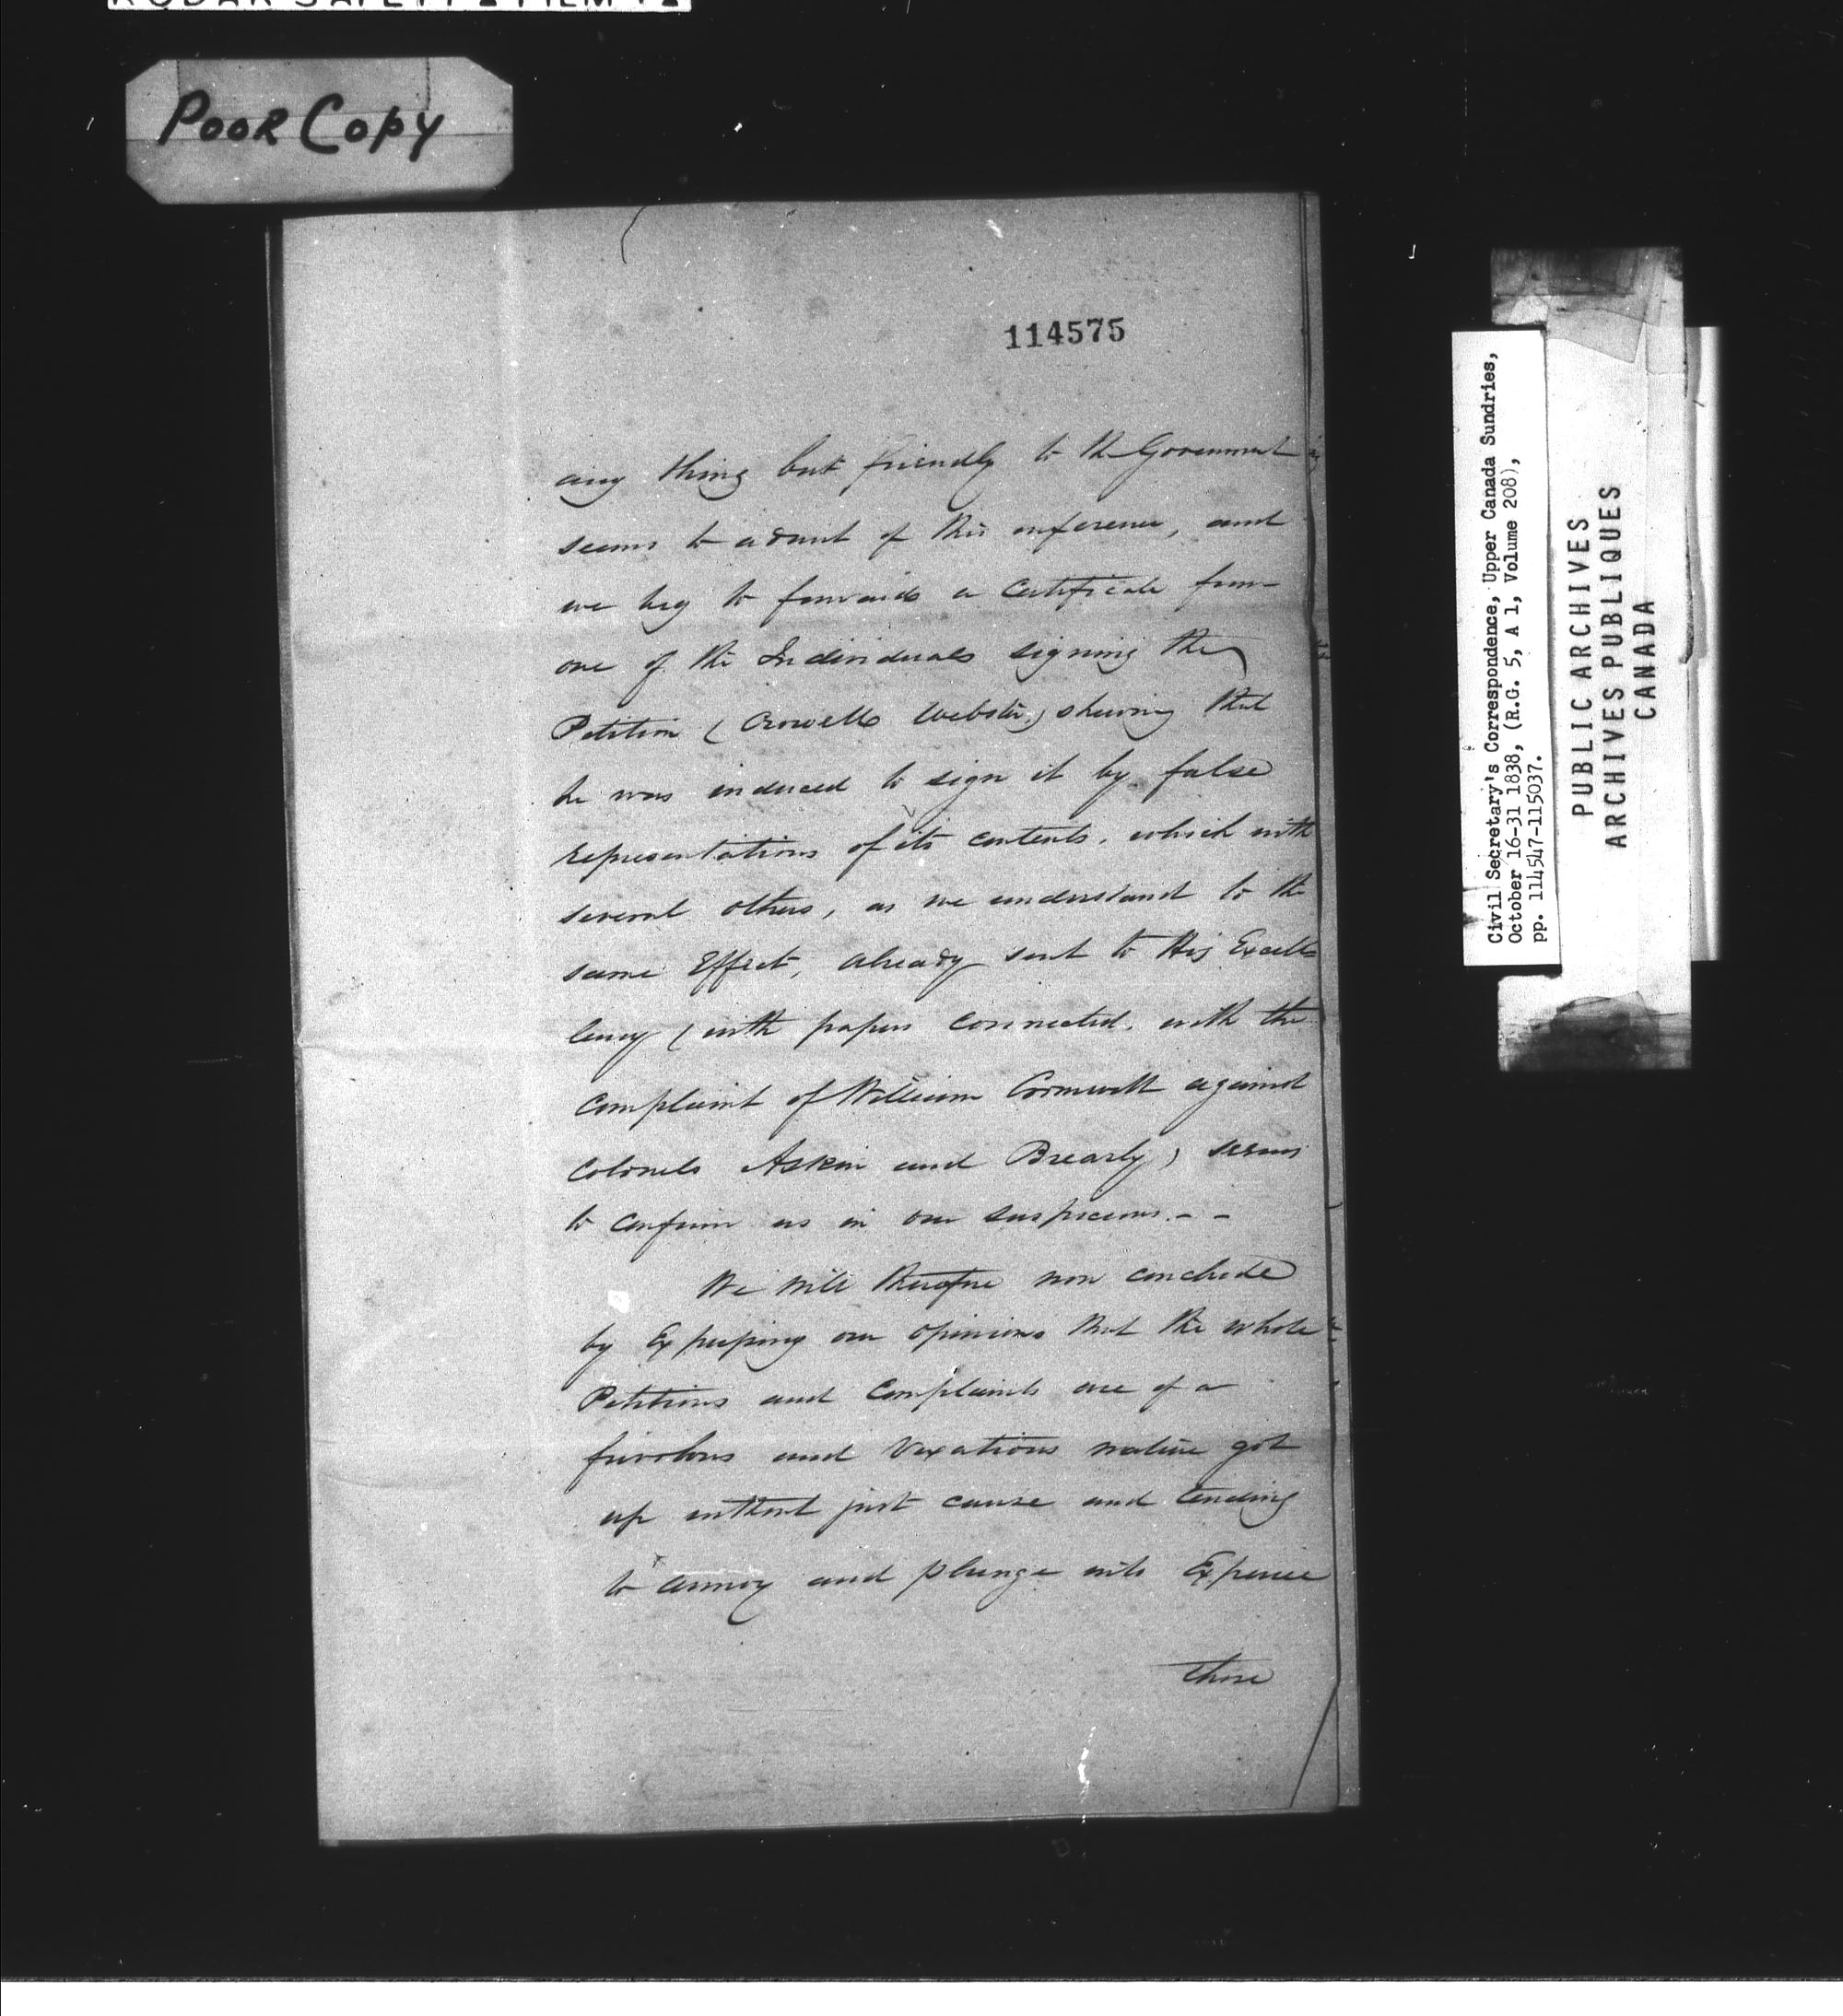 KODAK SAFETY FILM
Poor Copy
114575
any thing but friendly to the Government
seems to admit of this inference, and
we beg to forward a Certificate from
one of the Individuals signing the
Petition (Crowell Webster) shewing that
he was induced to sign it by false
representations of its contents. which with
several others, as we understand to the
same Effect, already sent to His Excel=
lency (with papers connected with the
Complaint of William Cornwall against
Colonels Askin and Brearly) seems
to confirm us in our suspicions. - -
We will therefore now conclude
by Expressing our opinions that the whole
Petitions and Complaints are of a
frivolous and Vexatious nature got
up without just cause and tending
to annoy and plunge into Expence
those
Civil Secretary's Correspondence, Upper Canada Sundries,
October 16-31 1838, (R.G. 5, A 1, Volume 208),
pp. 114547-115037.
PUBLIC ARCHIVES
ARCHIVES PUBLIQUES
CANADA